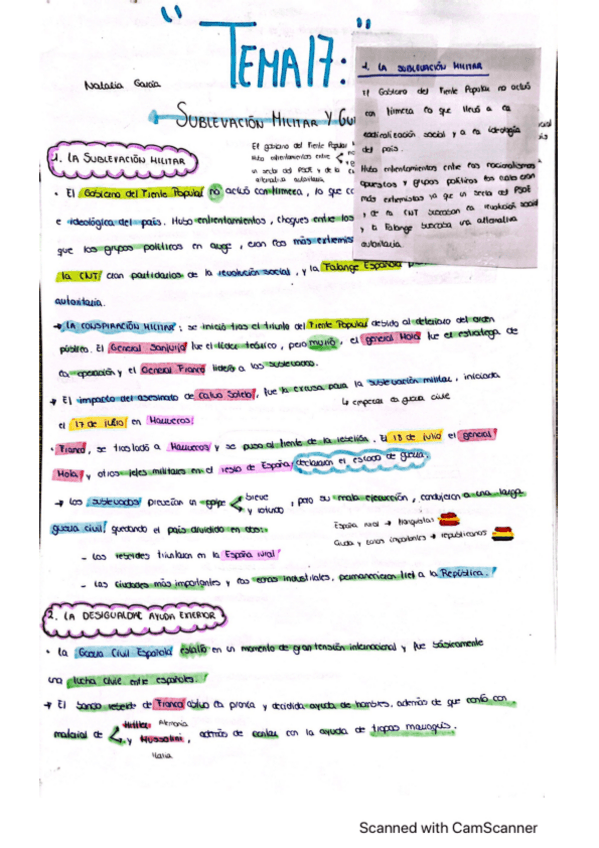 "TEMA 17:
Natalia García
SUBLEVACIÓN MILITAR Y GU
1. LA SUBLEVACIÓN MILITAR
El gobierno del Frente Popular no actuó
con firmeza lo que llevó a la
radicalización social y a la ideología
del país.
Hubo enfrentamientos entre los nacionalismos
opuestos y grupos políticos en cada eran
más extremistas ya que un sector del PSOE
y de la CNT buscaban la revolución social
y la Falange buscaba una alternativa
autoritaria.
1. LA SUBLEVACIÓN MILITAR
El gobierno del Frente Popular
Hubo enfrentamientos entre
un sector del PSOE y de la
alternativa autoritaria
· El Gobierno del Frente Popular no actuó con firmeza, lo que co
e ideológica del país. Hubo enfrentamientos, choques entre los
que los grupos políticos en auge, eran los más extremis
la CNT eran partidarios de la revolución social, y la Falange Española
autoritaria.
→ LA CONSPIRACIÓN MILITAR: se inició tras el triunfo del Frente Popular debido al deterioro del orden
público. El General Sanjurjo fue el líder teórico, pero murió, el general Mola fue el estratega de
la operación y el General Franco lideró a los sublevados.
→ El impacto del asesinato de Calvo Sotelo, fue la excusa para la sublevación militar, iniciada
↳ empezar la guerra civil
el 17 de julio en Marruecos!
· Franco, se trasladó a Marruecos y se puso al frente de la rebelión. El 18 de julio el general
Mola y otros jefes militares en el resto de España, declararon el estado de guerra.
→ Los sublevados preveían un golpe < breve y rotundo, pero su mala ejecución, condujeron a una larga
guerra civil! quedando el país dividido en dos:
España rural → franquistas
Ciuda y zonas importantes → republicanos
- Los rebeldes triunfaron en la España rural!
- Las ciudades más importantes y las zonas industriales, permanecieron fiel a la República.!
2. LA DESIGUALDAD AYUDA EXTERIOR
· La Guerra Civil Española estalló en un momento de gran tensión internacional y fue básicamente
una lucha civil entre españoles.!
→ El bando rebelde de Franco obtuvo la pronta y decidida ayuda de hombres, además de que contó con
material de < Hitler Alemania
y Mussolini, además de contar con la ayuda de tropas marroquís.
Italia
Scanned with CamScanner